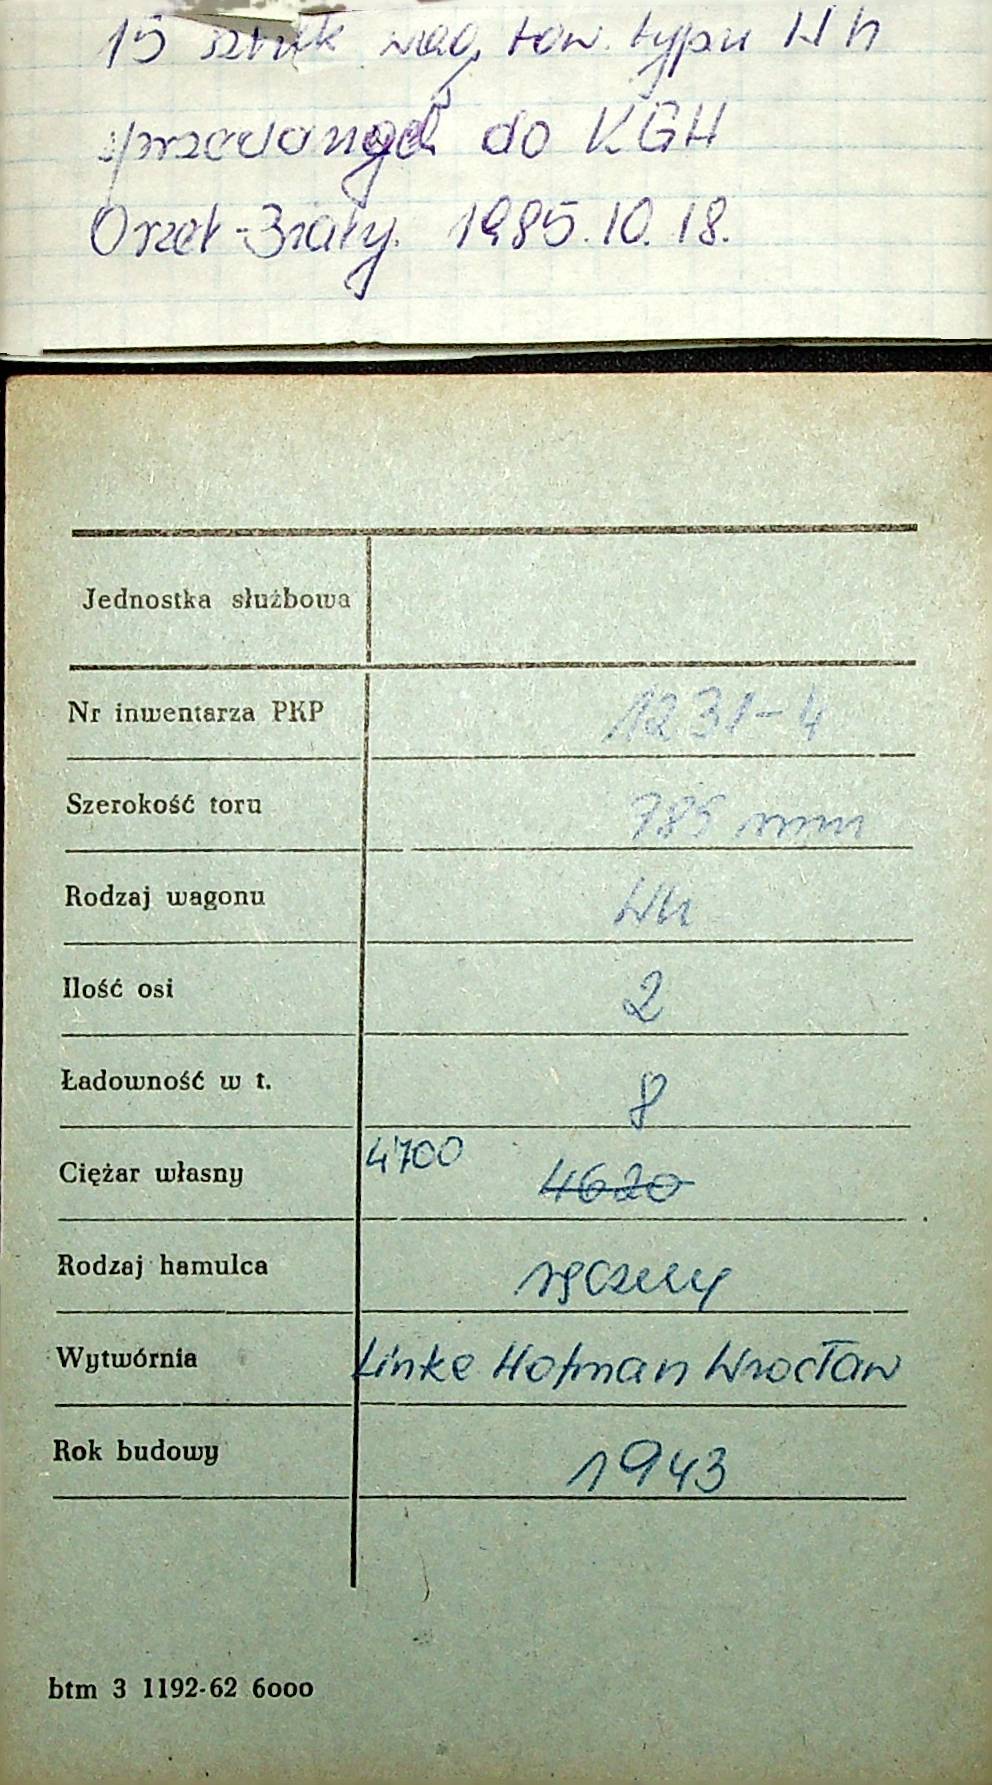 15 sztuk wag. tow. typu Wh
sprzedanych do KGH
Orzeł-Biały. 1985.10.18.
Jednostka służbowa
Nr inwentarza PKP 1231-4
Szerokość toru 785 mm
Rodzaj wagonu Wh
Ilość osi 2
Ładowność w t. 8
Ciężar własny 4700 4620
Rodzaj hamulca ręczny
Wytwórnia Linke Hofman Wrocław
Rok budowy 1943
btm 3 1192-62 6000